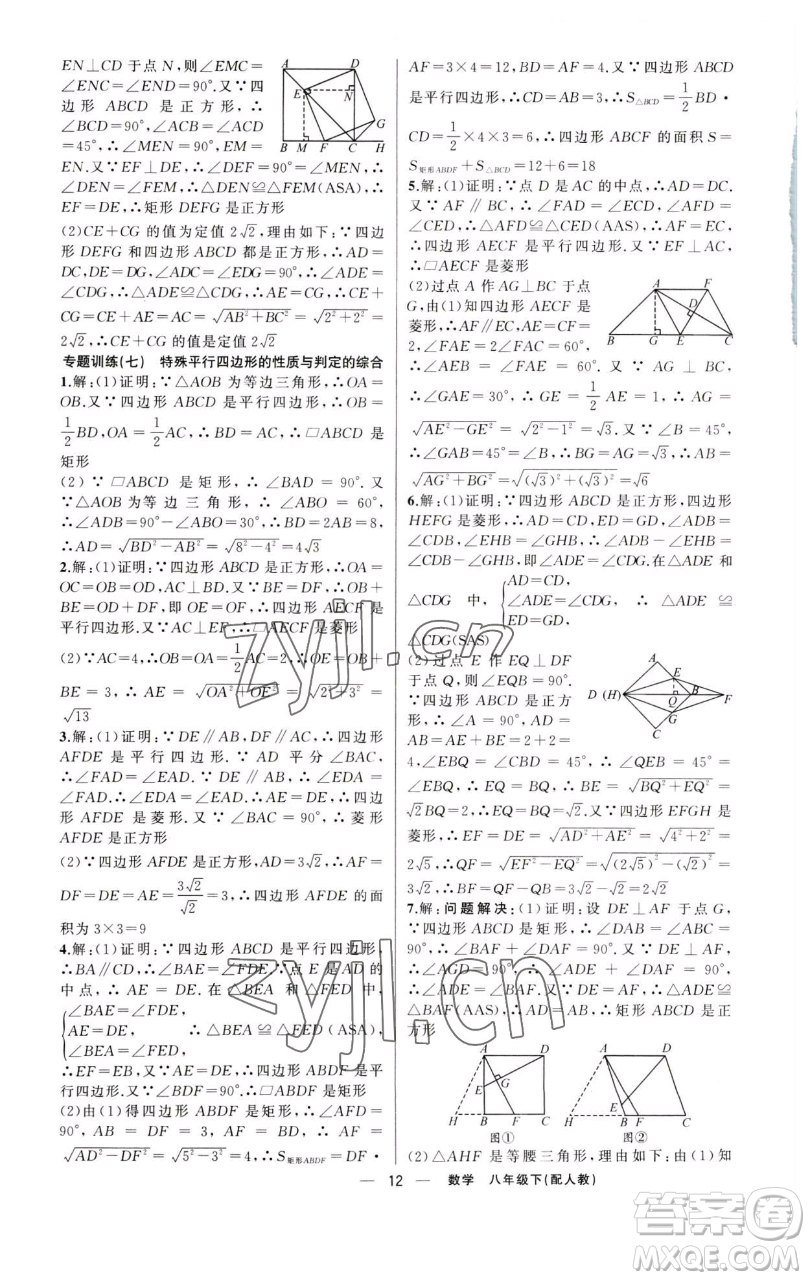 EN⊥CD于点N,则∠EMC=
∠ENC=∠END=90°.又∵四
边形 ABCD 是正方形,∴
∠BCD=90°,∠ACB=∠ACD
=45°,∴∠CEM=∠CEN=
45°,∴EM=EN,∠MEN=
90°.又∵EF⊥DE,∴∠DEF=90°=∠MEN,∴
∠DEN=∠FEM,∴△DEN≌△FEM(ASA),∴
EF=DE,∴矩形 DEFG 是正方形
(2)CE+CG 的值为定值 2√2,理由如下:∵四边
形 DEFG 和四边形 ABCD 都是正方形,∴AD=
DC,DE=DG,∠ADC=∠EDG=90°,∴∠ADE=
∠CDG,∴△ADE≌△CDG,∴AE=CG,∴CE+
CG=CE+AE=AC=√(AB²+BC²)=√(2²+2²)=
2√2,∴CE+CG 的值是定值 2√2
专题训练(七) 特殊平行四边形的性质与判定的综合
1.解:(1)证明:∵△AOB 为等边三角形,∴OA=
OB.又∵四边形 ABCD 是平行四边形,∴OB=
1/2 BD,OA=1/2 AC,∴BD=AC,∴□ABCD 是
矩形
(2)∵□ABCD 是矩形,∴∠BAD=90°.又
∵△AOB为等边三角形,∴∠ABO=60°,
∴∠ADB=90°-∠ABO=30°,∴BD=2AB=8,
∴AD=√(BD²-AB²)=√(8²-4²)=4√3
2.解:(1)证明:∵四边形 ABCD 是正方形,∴OA=
OC=OB=OD,AC⊥BD.又∵BE=DF,∴OB+
BE=OD+DF,即 OE=OF,∴四边形 AECF 是
平行四边形.又∵AC⊥EF,∴□AECF 是菱形
(2)∵AC=4,∴OB=OA=1/2 AC=2,∴OE=OB+
BE=3,∴AE=√(OA²+OE²)=√(2²+3²)=
√13
3.解:(1)证明:∵DE∥AB,DF∥AC,∴四边形
AFDE 是平行四边形.∵AD 平分∠BAC,
∴∠FAD=∠EAD.又∵DE∥AB,∴∠EDA=
∠FAD.∴∠EDA=∠EAD,∴AE=DE,∴四边
形 AFDE 是菱形.又∵∠BAC=90°,∴菱形
AFDE 是正方形
(2)∵四边形 AFDE 是正方形,AD=3√2,∴AF=
DF=DE=AE=3√2/√2=3,∴四边形 AFDE 的面
积为 3×3=9
4.解:(1)证明:∵四边形 ABCD 是平行四边形,
∴BA∥CD,∴∠BAE=∠FDE.∵点 E 是 AD 的
中点,∴AE=DE.在△BEA 和△FED 中,
∠BAE=∠FDE,
AE=DE, ∴△BEA≌△FED(ASA),∴
∠BEA=∠FED,
EF=EB,又∵AE=DE,∴四边形 ABDF 是平行
四边形.又∵∠BDF=90°,∴□ABDF 是矩形
(2)由(1)得四边形 ABDF 是矩形,∴∠AFD=
90°,AB=DF=3,AF=BD,∴AF=
√(AD²-DF²)=√(5²-3²)=4,∴S矩形ABDF=DF·
AF=3×4=12,BD=AF=4.又∵四边形 ABCD
是平行四边形,∴CD=AB=3,∴S△BCD=1/2 BD·
CD=1/2×4×3=6,∴四边形 ABCF 的面积 S=
S矩形ABDF+S△BCD=12+6=18
5.解:(1)证明:∵点 D 是 AC 的中点,∴AD=DC.
又∵AF∥BC,∴∠FAD=∠ECD,∠AFD=
∠CED,∴△AFD≌△CED(AAS),∴AF=EC,
∴四边形 AECF 是平行四边形.又∵EF⊥AC,
∴□AECF 是菱形
(2)过点 A 作 AG⊥BC 于点
G,由(1)知四边形 AECF 是
菱形,∴AF∥EC,AE=AF=
2,∠FAE=2∠FAC=60°,∴
∠AEB=∠FAE=60°.∵
AG⊥BC,∴∠AGB=∠AGE=90°,
∴∠GAE=30°,∴GE=1/2 AE=1,∴AG=
√(AE²-GE²)=√(2²-1²)=√3.又∵∠B=45°,
∴∠GAB=∠B=45°,∴BG=AG=√3,∴AB=
√(AG²+BG²)=√((√3)²+(√3)²)=√6
6.解:(1)证明:∵四边形 ABCD 是正方形,四边形
HEFG 是菱形,∴AD=CD,ED=GD,∠ADB=
∠CDB,∠EHB=∠GHB,∴∠ADB-∠EHB=
∠CDB-∠GHB,即∠ADE=∠CDG.在△ADE 和
△CDG 中,
AD=CD,
∠ADE=∠CDG, ∴△ADE≌
ED=GD,
△CDG(SAS)
(2)过点 E 作 EQ⊥DF
于点 Q,则∠EQB=90°.
∵四边形 ABCD 是正方
形,∴∠A=90°,AD=
AB=AE+BE=2+2=
4,∠EBQ=∠CBD=45°,∴∠QEB=45°=
∠EBQ,∴EQ=BQ,∴BE=√(BQ²+EQ²)=
√2BQ=2,∴EQ=BQ=√2.又∵四边形 EFGH 是
菱形,∴EF=DE=√(AD²+AE²)=√(4²+2²)=
2√5,∴QF=√(EF²-EQ²)=√((2√5)²-(√2)²)=
3√2,∴BF=QF-BQ=3√2-√2=2√2
7.解:问题解决:(1)证明:设 DE⊥AF 于点 G,
∵四边形 ABCD 是矩形,∴∠DAB=∠ABC=
90°,∴∠BAF+∠DAF=90°.又∵DE⊥AF,
∴∠AGD=90°,∴∠ADE+∠DAF=90°,
∴∠ADE=∠BAF.又∵DE=AF,∴△ADE≌△
BAF(AAS),∴AD=BA,∴矩形 ABCD 是正
方形
图① 图②
(2)△AHF 是等腰三角形.理由如下:由(1)知
— 12 — 数学 八年级下(配人教)
zyjl.cn
zyjl.cn
答案圈
MXQE.COM